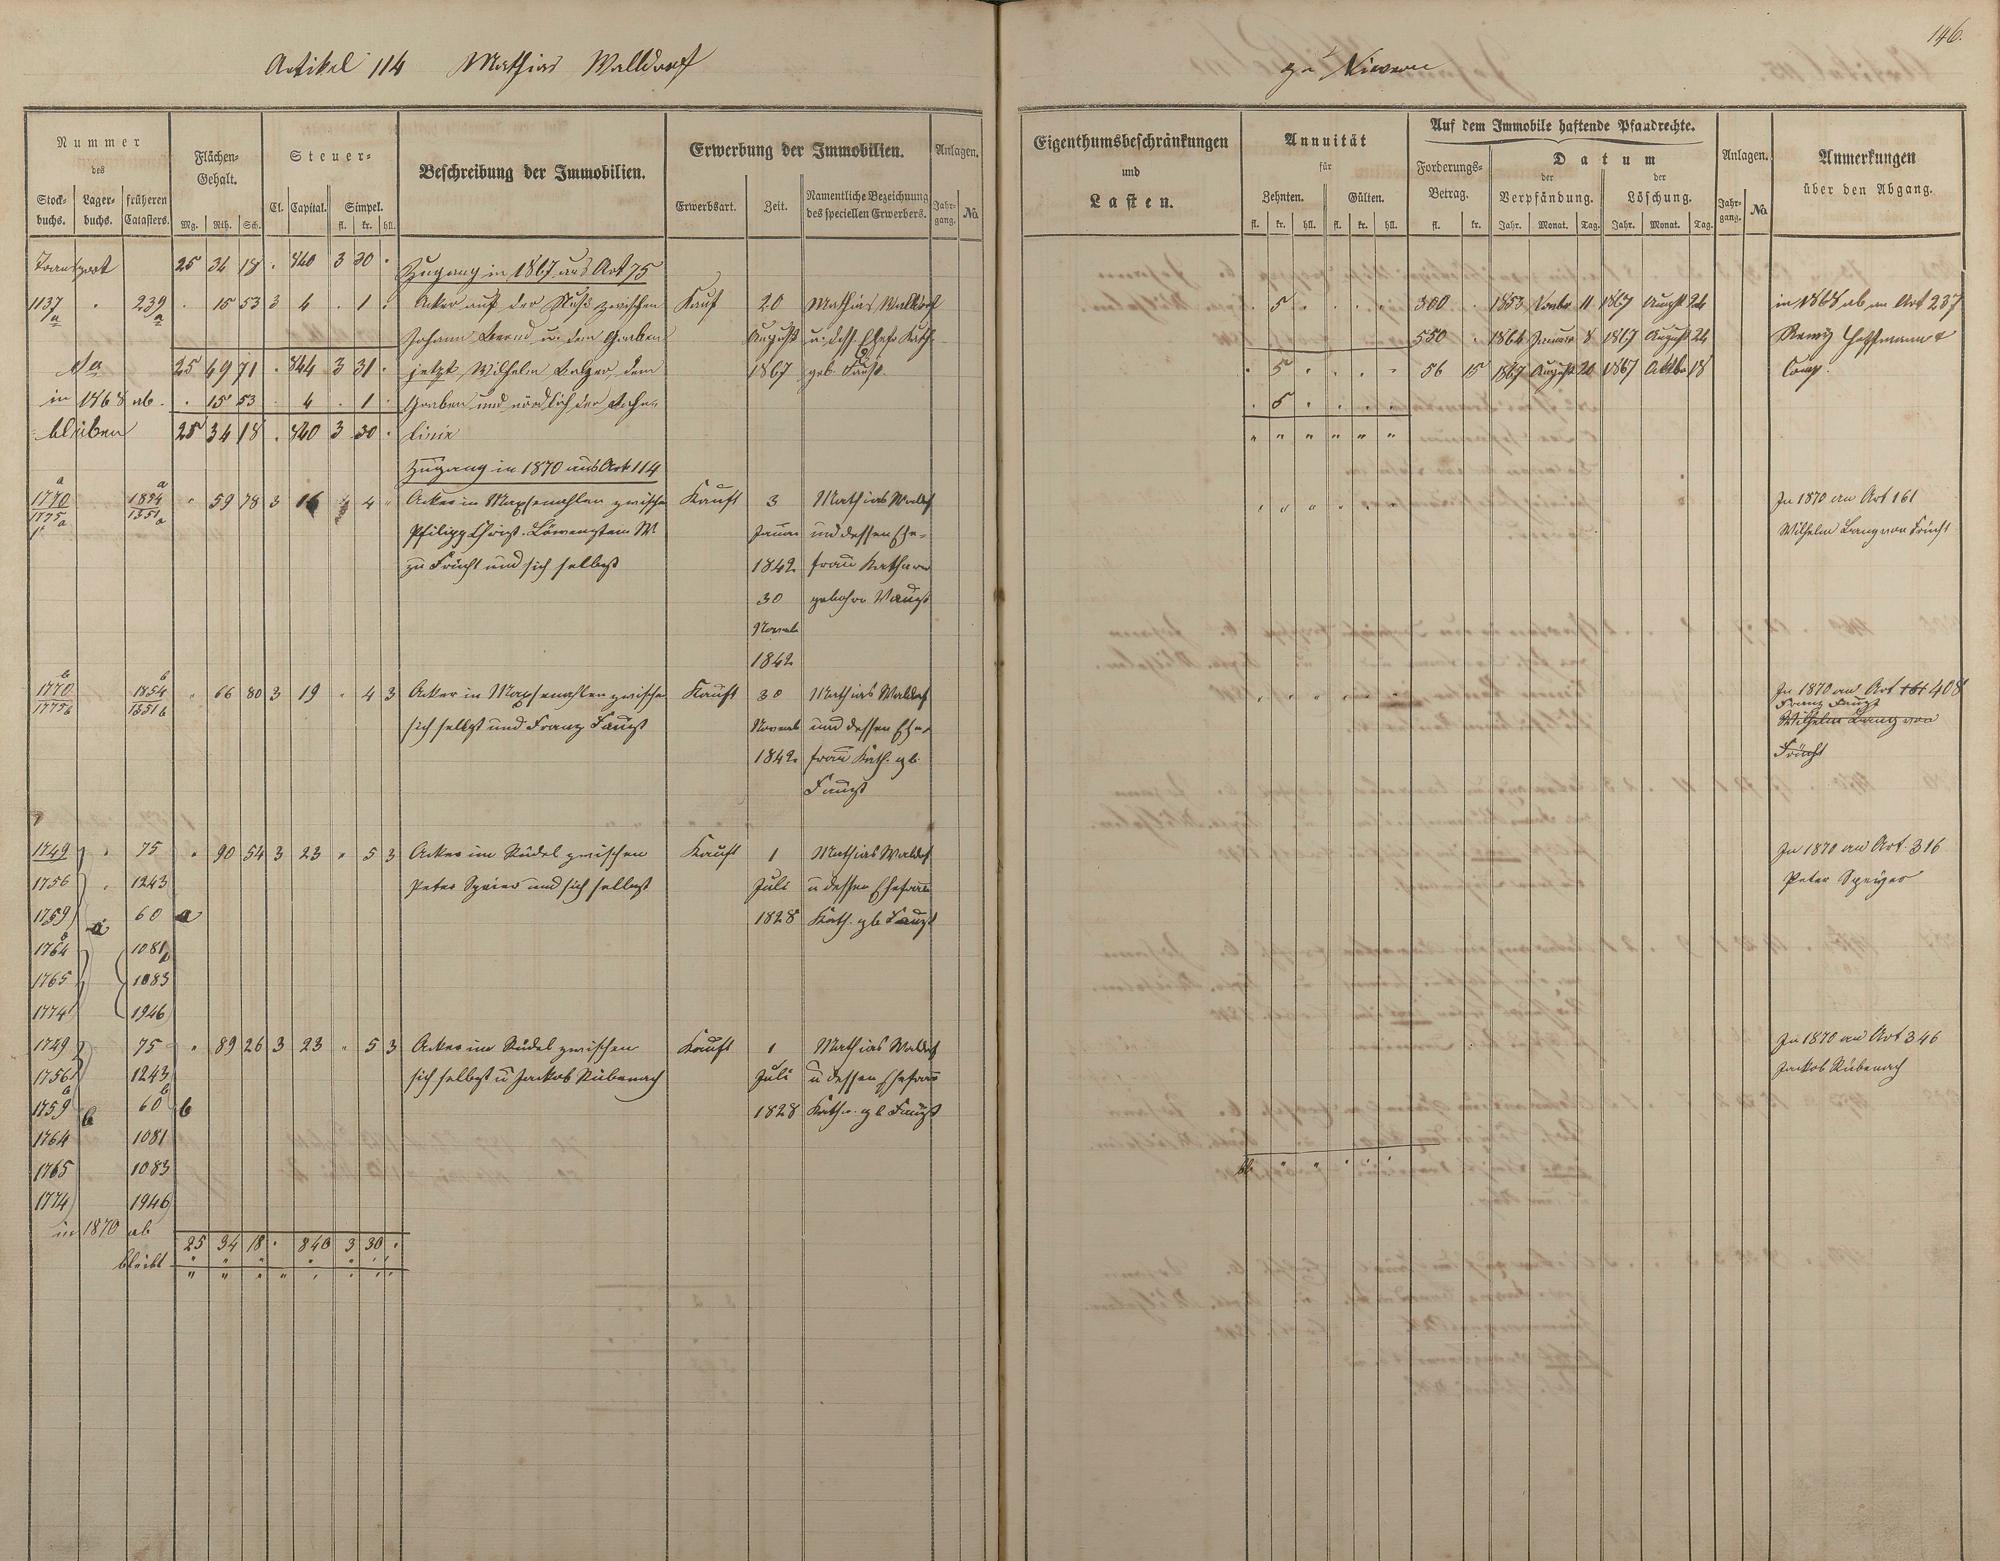 146.
Artikel 114 Mathias Walldorf zu Nievern
Nummer des
Stock-buchs. Lager-buchs. früheren Catasters.
Flächen-Gehalt.
Mg. Rth. Sch.
Steuer-
Cl. Capital. Simpel.
fl. kr. hll.
Beschreibung der Immobilien.
Erwerbung der Immobilien.
Erwerbsart. Zeit. Namentliche Bezeichnung des speciellen Erwerbers.
Anlagen.
Jahr-gang. No
Eigenthumsbeschränkungen und Lasten.
Annuität für
Zehnten. Gülten.
fl. kr. hll. fl. kr. hll.
Auf dem Immobile haftende Pfandrechte.
Forderungs-Betrag.
fl. kr.
Datum
der Verpfändung. der Löschung.
Jahr. Monat. Tag. Jahr. Monat. Tag.
Anlagen.
Jahr-gang. No
Anmerkungen über den Abgang.
Transport 25 34 18 . 840 3 30 .
Zugang in 1867 aus Art 75
1137 a " 239 a . 15 53 3 4 . 1 . Acker auf der zwischen Kauf 20 Mathias Walldorf . 5 . . . . 300 . 1853 11 1867 August 24 in 1868 ab an Art 237
Johann u. dem Graben August u. dess. Ehefr. Kath. 550 . 1864 Januar 8 1867 August 24 Remy Hoffmann &
25 49 71 . 844 3 31 . jetzt Wilhelm Balzer, dem 1867 geb. Faust . 5 . . . . 56 15 1867 August 20 1867 Oktbr 18 Comp.
in 1868 ab . . 15 53 . 4 . 1 . Graben und nördlich der Bahn- . 5 . . . .
bleiben 25 34 18 . 840 3 30 . linie " " " " " "
Zugang in 1870 aus Art 114
1770 a 1854 a " 59 78 3 16 " 4 " Acker in zwischen Kauft 3 Mathias Waldorf In 1870 an Art 161
1775 a 1351 a Philipp Christ. Löwenstein Wb. Januar und dessen Ehe- Wilhelm Lang von Frücht
zu Frücht und sich selbst 1842 frau Katharina
30 geborne Faust
Novemb
1842
1770 b 1854 b " 66 80 3 19 " 4 3 Acker in zwischen Kauft 30 Mathias Waldorf In 1870 an Art 161 408
1775 b 1351 b sich selbst und Franz Faust Novemb und dessen Ehe- Franz Faust
Wilhelm Lang von
1842 frau Kath. geb. Frücht
Faust
1749 " 75 " 90 54 3 23 " 5 3 Acker im Rüdel zwischen Kauft 1 Mathias Waldorf In 1870 an Art. 316
1756 " 1243 Peter Speier und sich selbst Juli u dessen Ehefrau Peter Speyer
1759 a 60 a 1828 Kath. gb Faust
1764 1081
1765 1083
1774 1946
1749 75 " 89 26 3 23 " 5 3 Acker im Rüdel zwischen Kauft 1 Mathias Waldorf In 1870 an Art 346
1756 1243 sich selbst u Jackob Rübenach Juli u dessen Ehefrau Jackob Rübenach
1759 b 60 b 1828 Kath. gb Faust
1764 1081
1765 1083
1774 1946
in 1870 ab 25 34 18 . 840 3 30 .
bleibt " " " " " " " "